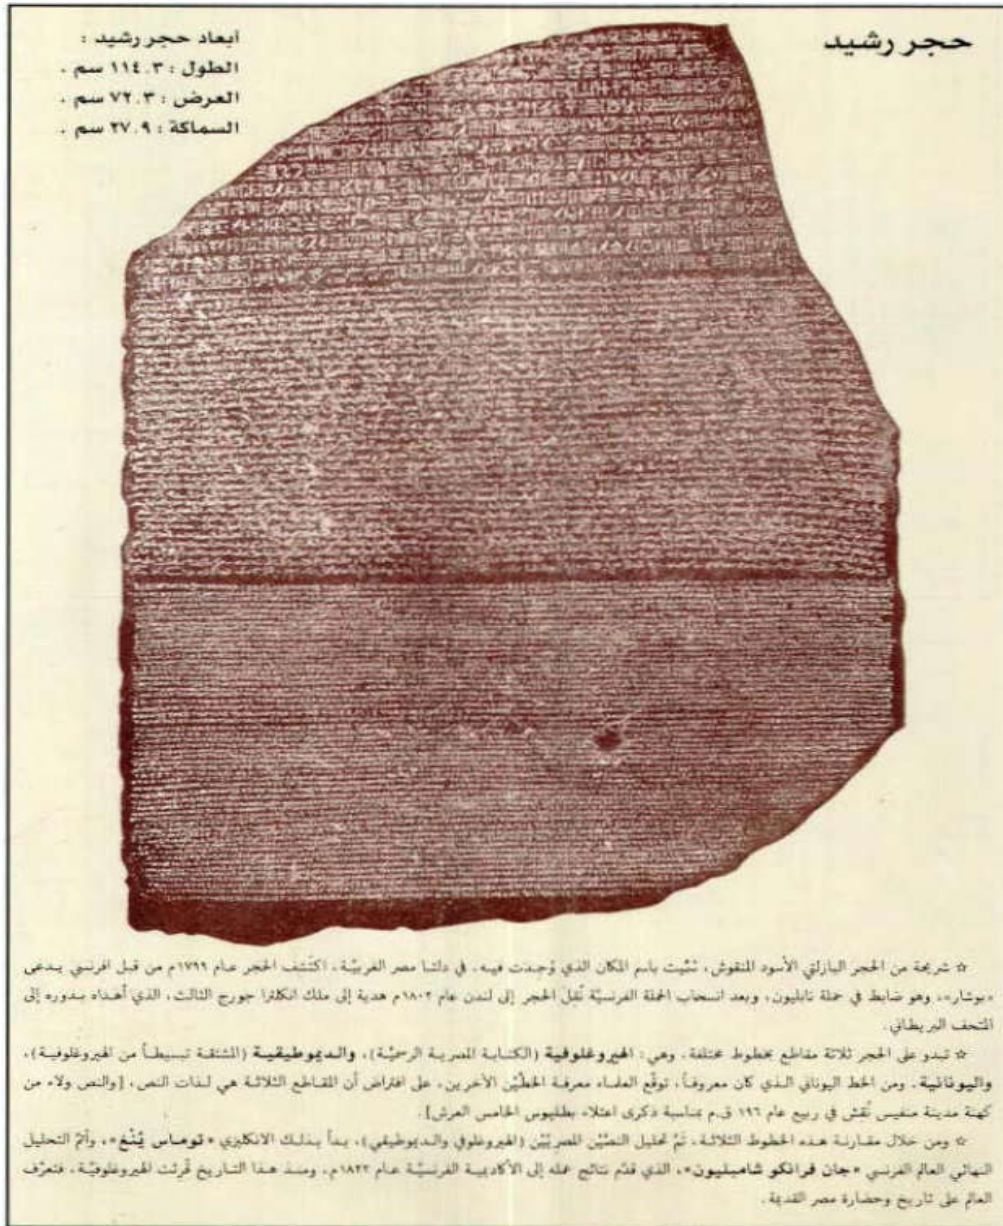 حجر رشيد
أبعاد حجر رشيد :
الطول : ١١٤.٣ سم .
العرض : ٧٢.٣ سم .
السماكة : ٢٧.٩ سم .
☆ شريحة من الحجر البازلتي الأسود المنقوش، سُمّيت باسم المكان الذي وُجدت فيه، في دلتا مصر الغربيّة، اكتُشف الحجر عام ١٧٩٩م من قبل افرنسي يدعى
«بوشار»، وهو ضابط في حملة نابليون، وبعد انسحاب الحملة الفرنسيّة نُقِلَ الحجر إلى لندن عام ١٨٠٢م هدية إلى ملك انكلترا جورج الثالث، الذي أهداه بدوره إلى
المتحف البريطاني.
☆ تبدو على الحجر ثلاثة مقاطع بخطوط مختلفة، وهي: الهيروغلوفية (الكتابة المصرية الرسميّة)، والديموطيقية (المشتقة تبسيطاً من الهيروغلوفية)،
واليونانية. ومن الخط اليوناني الذي كان معروفاً، توقّع العلماء معرفة الخطّين الآخرين، على افتراض أن المقاطع الثلاثة هي لذات النص، [والنص ولاء من
كهنة مدينة منفيس نُقِش في ربيع عام ١٩٦ ق.م بمناسبة ذكرى اعتلاء بطليوس الخامس العرش].
☆ ومن خلال مقارنة هذه الخطوط الثلاثة، تمّ تحليل النصّين المصريّين (الهيروغلوفي والديموطيقي)، بدأ بذلك الانكليزي «توماس يُنْغ»، وأتمّ التحليل
النهائي العالم الفرنسي «جان فرانكو شامبليون»، الذي قدّم نتائج عمله إلى الأكاديمية الفرنسيّة عام ١٨٢٢م، ومنذ هذا التاريخ قُرئت الهيروغلوفيّة، فتعرّف
العالم على تاريخ وحضارة مصر القديمة.